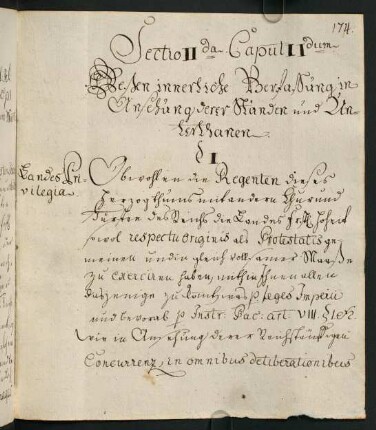 174.
Sectio II da Caput II dum
Dessen innerliche Verfassung in
Ansehung derer Ständen und Un-
terthanen.
§ I
Landes Pri-
vilegia.
Obwohlen die Regenten dieses
Herzogthums mit andern Chur und
Fürsten des Reichs die Landes Frstl. Hoheit
sowol respectu originis als Potestatis ge-
mein und in gleich vollkomner Maasse
zu exerciren haben, mithin Ihnen alles
dasjenige zu kombt, was p leges Imperii
und bevorab p Instr: Pac: art VIII. §
wie in Ansehung derer Reichständigen
Concurrenz, in omnibus deliberationibus